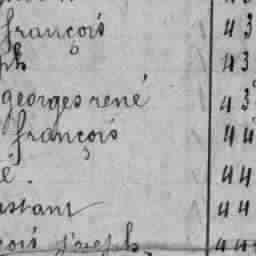 françois 43
ph 43
georges rené 43
françois 44
é. 44
nstant 44
çois joseph 44